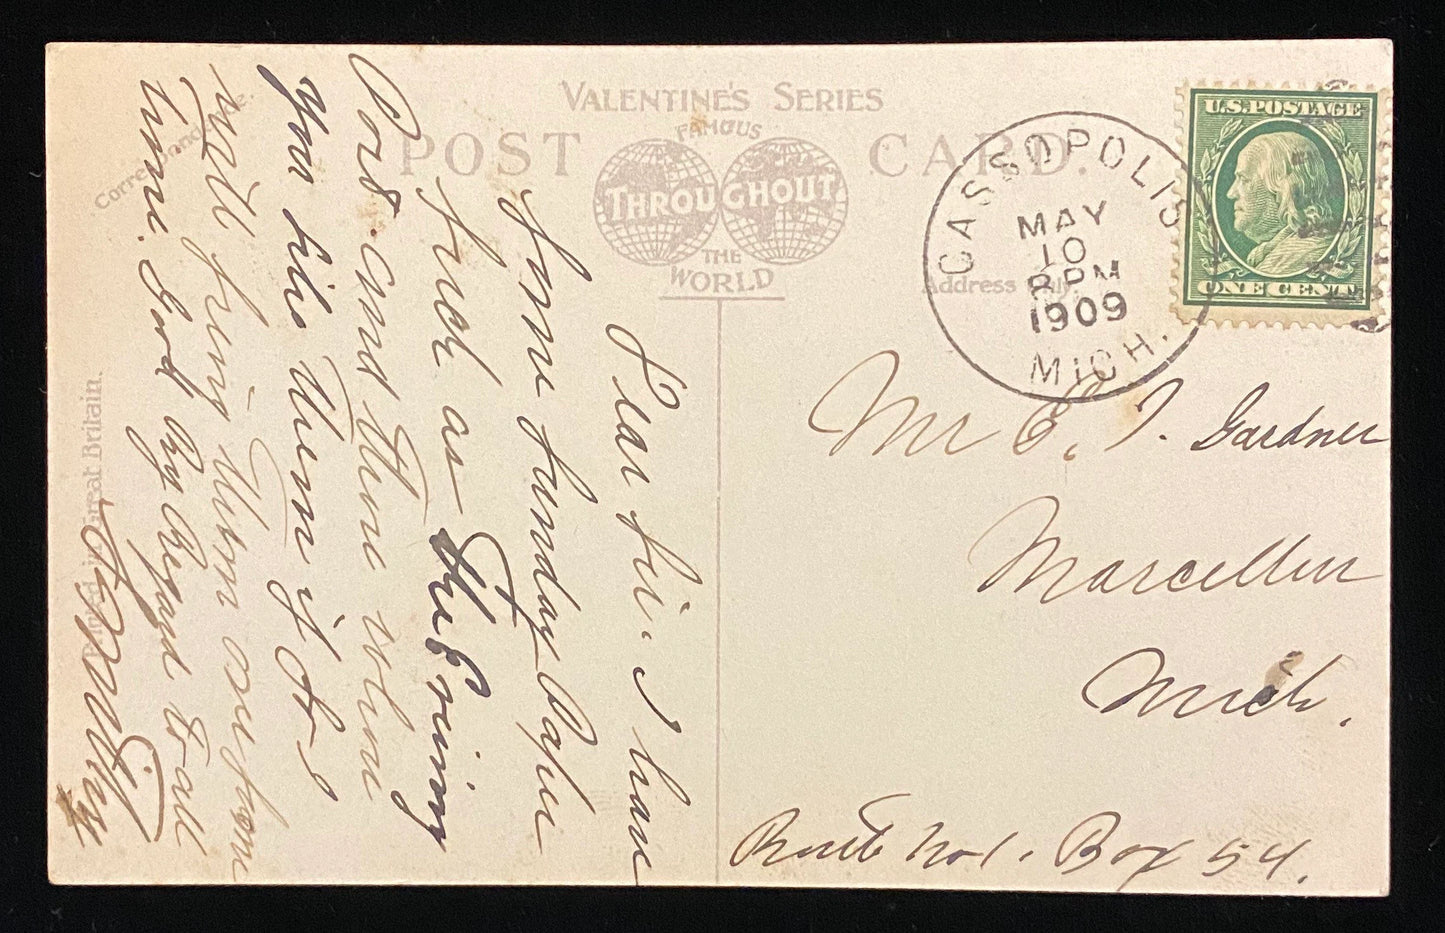 VALENTINE'S SERIES
POST CARD.
FAMOUS
THROUGHOUT
THE
WORLD
Correspondence.
Address Only.
Printed in Great Britain.
U.S. POSTAGE
ONE CENT
CASSOPOLIS
MAY
10
8 PM
1909
MICH.
Dear Sir. I have
some sunday Paper
such as the Evening
Post and
You like them if so I
will bring them some
time. Good by Regard to all
Mr E. J. Gardner
Marcellus
Mich.
Route No 1. Box 54.